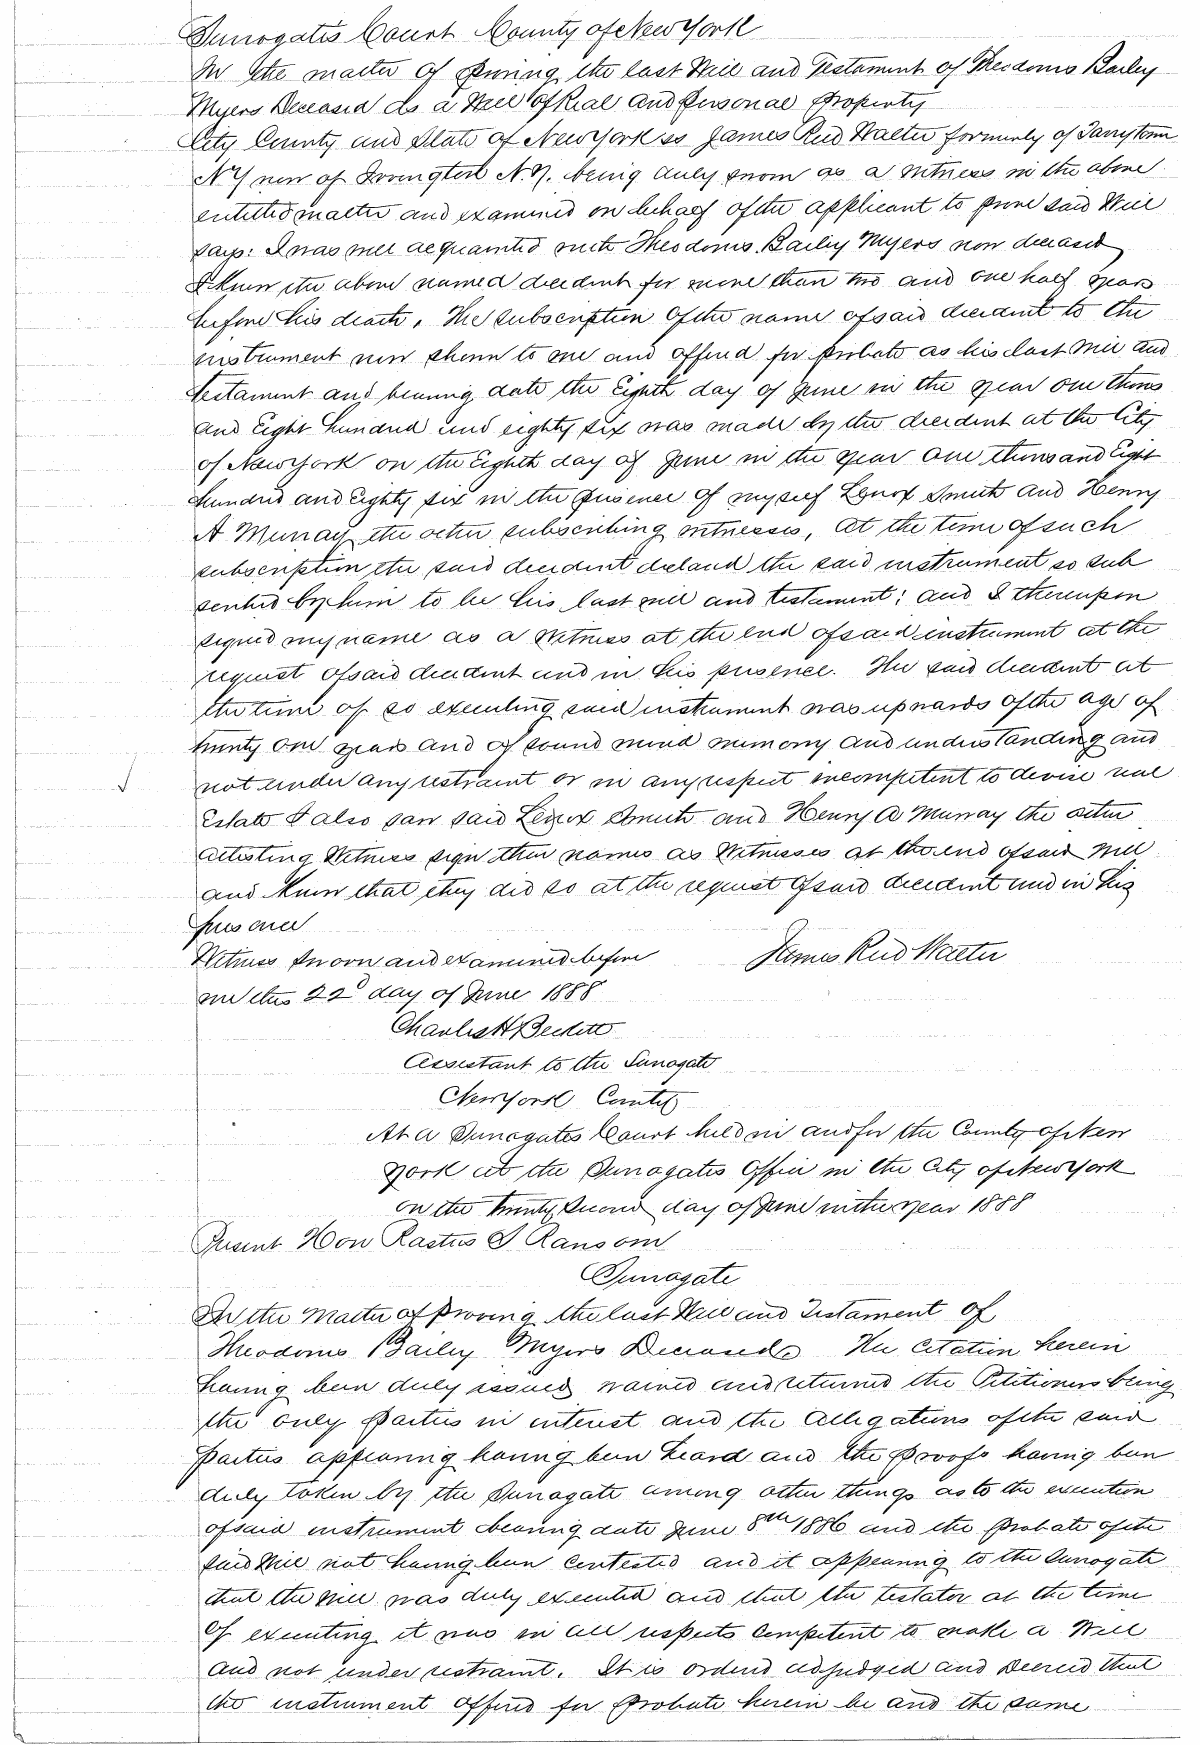 Surrogates Court County of New York
In the matter of Proving the last Will and Testament of Theodorus Bailey
Myers Deceased as a Will of Real and Personal Property
City County and State of New York ss James Reid Walter formerly of Tarrytown
N Y now of Irvington N.Y. being duly sworn as a witness in the above
entitled matter and examined on behalf of the applicant to prove said Will
says: I was well acquainted with Theodorus Bailey Myers now deceased
I knew the above named decedent for more than two and one half years
before his death. The subscription of the name of said decedent to the
instrument now shown to me and offered for probate as his last will and
testament and bearing date the Eighth day of June in the year one thous
and Eight hundred and eighty six was made by the decedent at the City
of New York on the Eighth day of June in the year one thousand Eight
hundred and Eighty six in the presence of myself Lenox Smith and Henry
A Murray the other subscribing witnesses, At the time of such
subscription the said decedent declared the said instrument so sub
scribed by him to be his last will and testament; and I thereupon
signed my name as a witness at the end of said instrument at the
request of said decedent and in his presence. The said decedent at
the time of so executing said instrument was upwards of the age of
twenty one years and of sound mind memory and understanding and
not under any restraint or in any respect incompetent to devise real
Estate I also saw said Lenox Smith and Henry A Murray the other
attesting Witness sign their names as Witnesses at the end of said Will
and knew that they did so at the request of said decedent and in his
presence
Witness sworn and examined before James Reid Walter
me this 22d day of June 1888
Charles H Beckett
Assistant to the Surrogate
New York County
At a Surrogates Court held in and for the County of New
York at the Surrogates Office in the City of New York
on the twenty second day of June in the year 1888
Present Hon Rastus S Ransom
Surrogate
In the Matter of Proving the last Will and Testament of
Theodorus Bailey Myers Deceased The Citation herein
having been duly issued waived and returned the Petitioners being
the only Parties in interest and the Allegations of the said
Parties appearing having been heard and the proofs having been
duly taken by the Surrogate among other things as to the execution
of said instrument bearing date June 8th 1886 and the Probate of the
said Will not having been Contested and it appearing to the Surrogate
that the Will was duly executed and that the testator at the time
of executing it was in all respects Competent to make a Will
and not under restraint. It is ordered adjudged and decreed that
the instrument offered for Probate herein be and the same